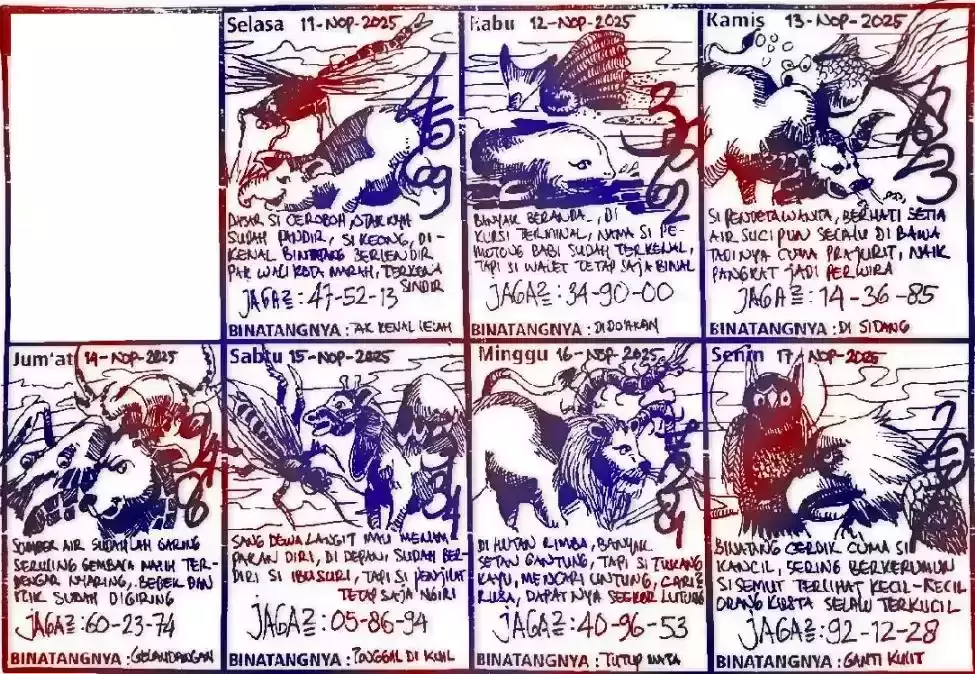 Selasa 11-NOP-2025
DASAR SI CEROBOH, OTAKNYA
SUDAH PANDIR, SI KEONG, DI-
KENAL BINATANG BERLENDIR
PAK WALI KOTA MARAH, TERKENA
SINDIR
JAGA2 : 47-52-13
BINATANGNYA : TAK KENAL LELAH
Rabu 12-NOP-2025
BANYAK BERANDA, DI
KURSI TERMINAL, NAMA SI PE-
MOTONG BABI SUDAH TERKENAL,
TAPI SI WALET TETAP SAJA BINAL
JAGA2 : 34-90-00
BINATANGNYA : DIDO'AKAN
Kamis 13-NOP-2025
SI PENDETA WANITA, BERHATI SETIA
AIR SUCI PUN SELALU DI BAWA
TADINYA CUMA PRAJURIT, NAIK
PANGKAT JADI PERWIRA
JAGA2 : 14-36-85
BINATANGNYA : DI SIDANG
Jum'at 14-NOP-2025
SUMBER AIR SUDAHLAH GARING
SERULING GEMBALA MASIH TER-
DENGAR NYARING, BEBEK DAN
ITIK SUDAH DIGIRING
JAGA2 : 60-23-74
BINATANGNYA : GELANDANGAN
Sabtu 15-NOP-2025
SANG DEWA LANGIT MAU MENAM
PAKAN DIRI, DI DEPAN, SUDAH BER-
DIRI SI IBU SURI, TAPI SI PENJILAT
TETAP SAJA NGIRI
JAGA2 : 05-86-94
BINATANGNYA : TINGGAL DI KUIL
Minggu 16-NOP-2025
DI HUTAN RIMBA, BANYAK
SETAN GANTUNG, TAPI SI TUKANG
KAYU, MENCARI UNTUNG, CARI2
RUSA, DAPATNYA SEEKOR LUTUNG
JAGA2 : 40-96-53
BINATANGNYA : TUTUP MATA
Senin 17-NOP-2025
BINATANG CERDIK CUMA SI
KANCIL, SERING BERKERUMUN
SI SEMUT TERLIHAT KECIL-KECIL
ORANG KUSTA SELALU TERKUCIL
JAGA2 : 92-12-28
BINATANGNYA : GANTI KULIT